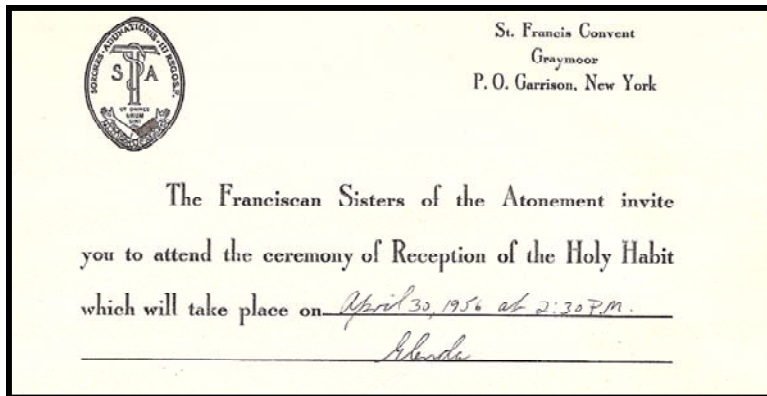 St. Francis Convent
Graymoor
P. O. Garrison, New York
S T A
UT OMNES
UNUM
SINT
The Franciscan Sisters of the Atonement invite
you to attend the ceremony of Reception of the Holy Habit
which will take place on April 30, 1956 at 2:30 P.M.
Glenda